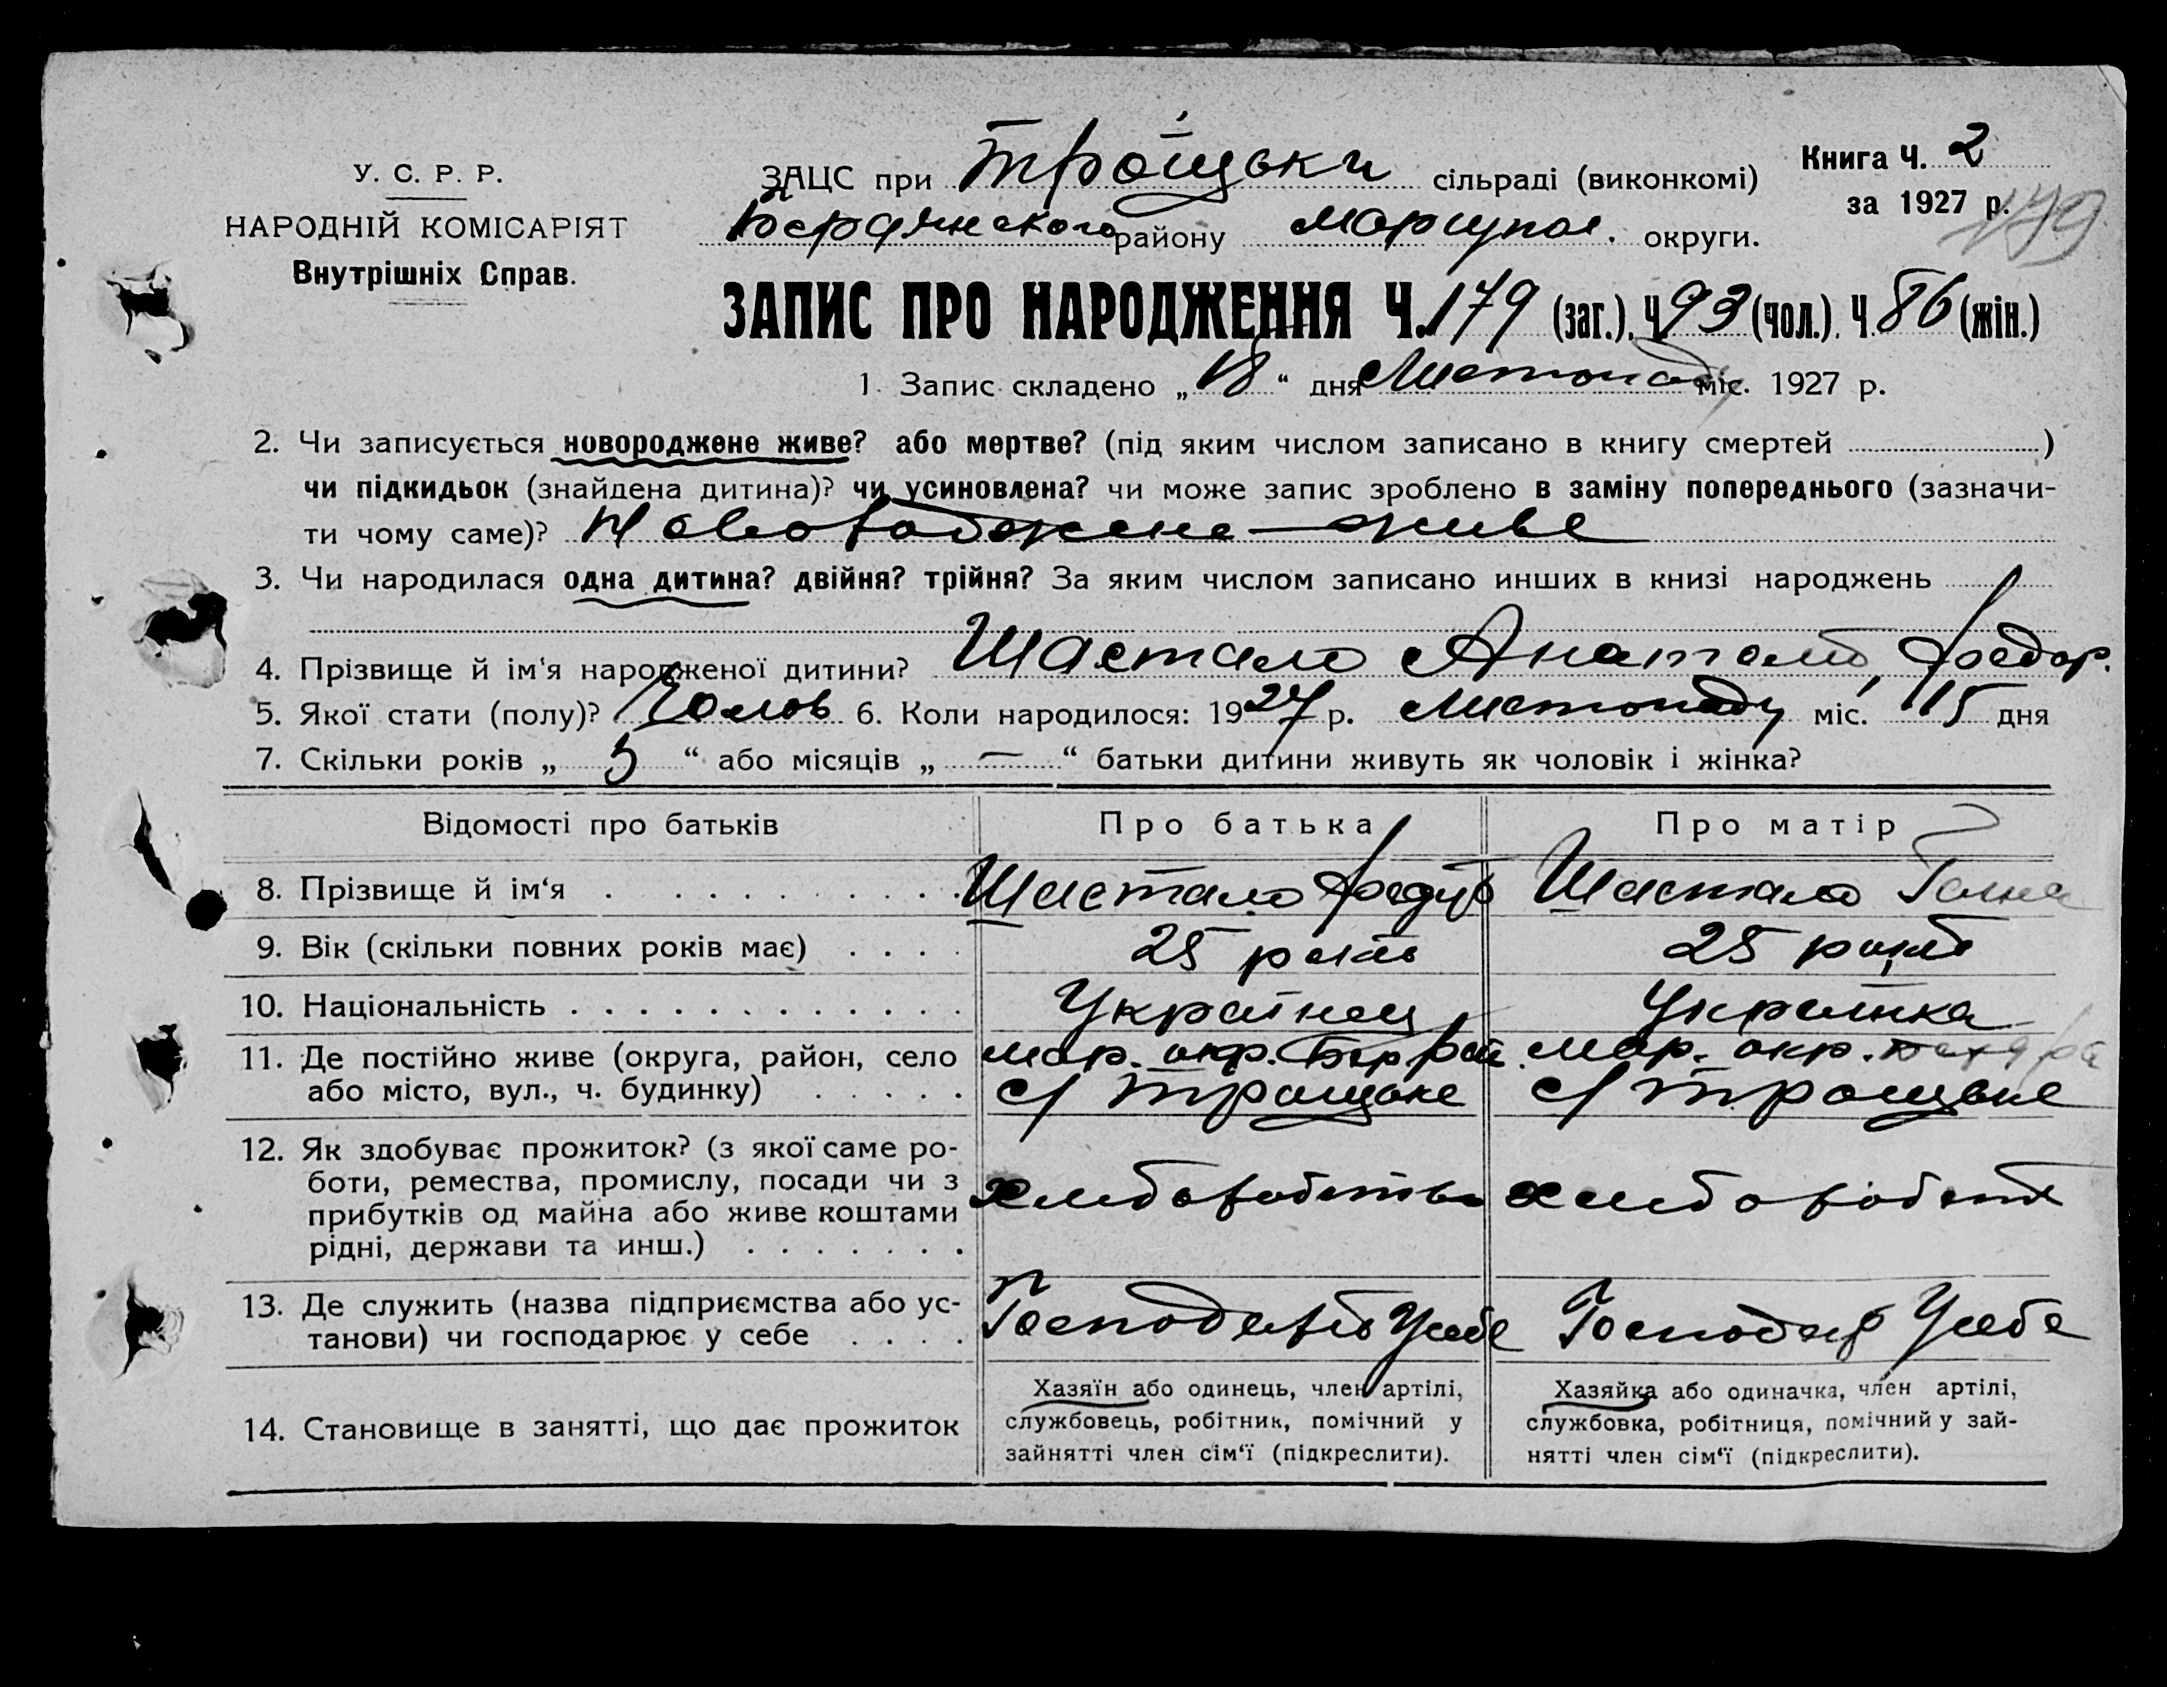 У. С. Р. Р.
НАРОДНІЙ КОМІСАРІЯТ
Внутрішніх Справ.
ЗАЦС при Троїцьки сільраді (виконкомі)
Бердянського району Маріупол. округи.
Книга Ч. 2
за 1927 р.
179
ЗАПИС ПРО НАРОДЖЕННЯ Ч. 179 (заг.), Ч. 93 (чол.), Ч. 86 (жін.)
1. Запис складено „ 18 “ дня Листопаду міс. 1927 р.
2. Чи записується новороджене живе? або мертве? (під яким числом записано в книгу смертей )
чи підкидьок (знайдена дитина)? чи усиновлена? чи може запис зроблено в заміну попереднього (зазначи-
ти чому саме)? Новонароджене живе
3. Чи народилася одна дитина? двійня? трійня? За яким числом записано инших в книзі народжень
4. Прізвище й ім'я народженої дитини? Шастало Анатолій Федор.
5. Якої стати (полу)? Чолов 6. Коли народилося: 1927 р. Листопаду міс. 15 дня
7. Скільки років „ 5 “ або місяців „ — “ батьки дитини живуть як чоловік і жінка?
Відомості про батьків Про батька Про матір
8. Прізвище й ім‘я Шастало Федір Шастало Ганна
9. Вік (скільки повних років має) 25 років 25 років
10. Національність Українец Українка
11. Де постійно живе (округа, район, село
або місто, вул., ч. будинку)
Мар. окр. Бер рай
с/ Троїцьке
Мар. окр.
с/ Троїцьке
12. Як здобуває прожиток? (з якої саме ро-
боти, ремества, промислу, посади чи з
прибутків од майна або живе коштами
рідні, держави та инш.)
хлібороbство
хлібороб
13. Де служить (назва підприємства або ус-
танови) чи господарює у себе
Господарь У себе
Господар У себе
14. Становище в занятті, що дає прожиток
Хазяїн або одинець, член артілі,
службовець, робітник, помічний у
зайнятті член сім‘ї (підкреслити).
Хазяйка або одиначка, член артілі,
службовка, робітниця, помічний у зай-
нятті член сім‘ї (підкреслити).